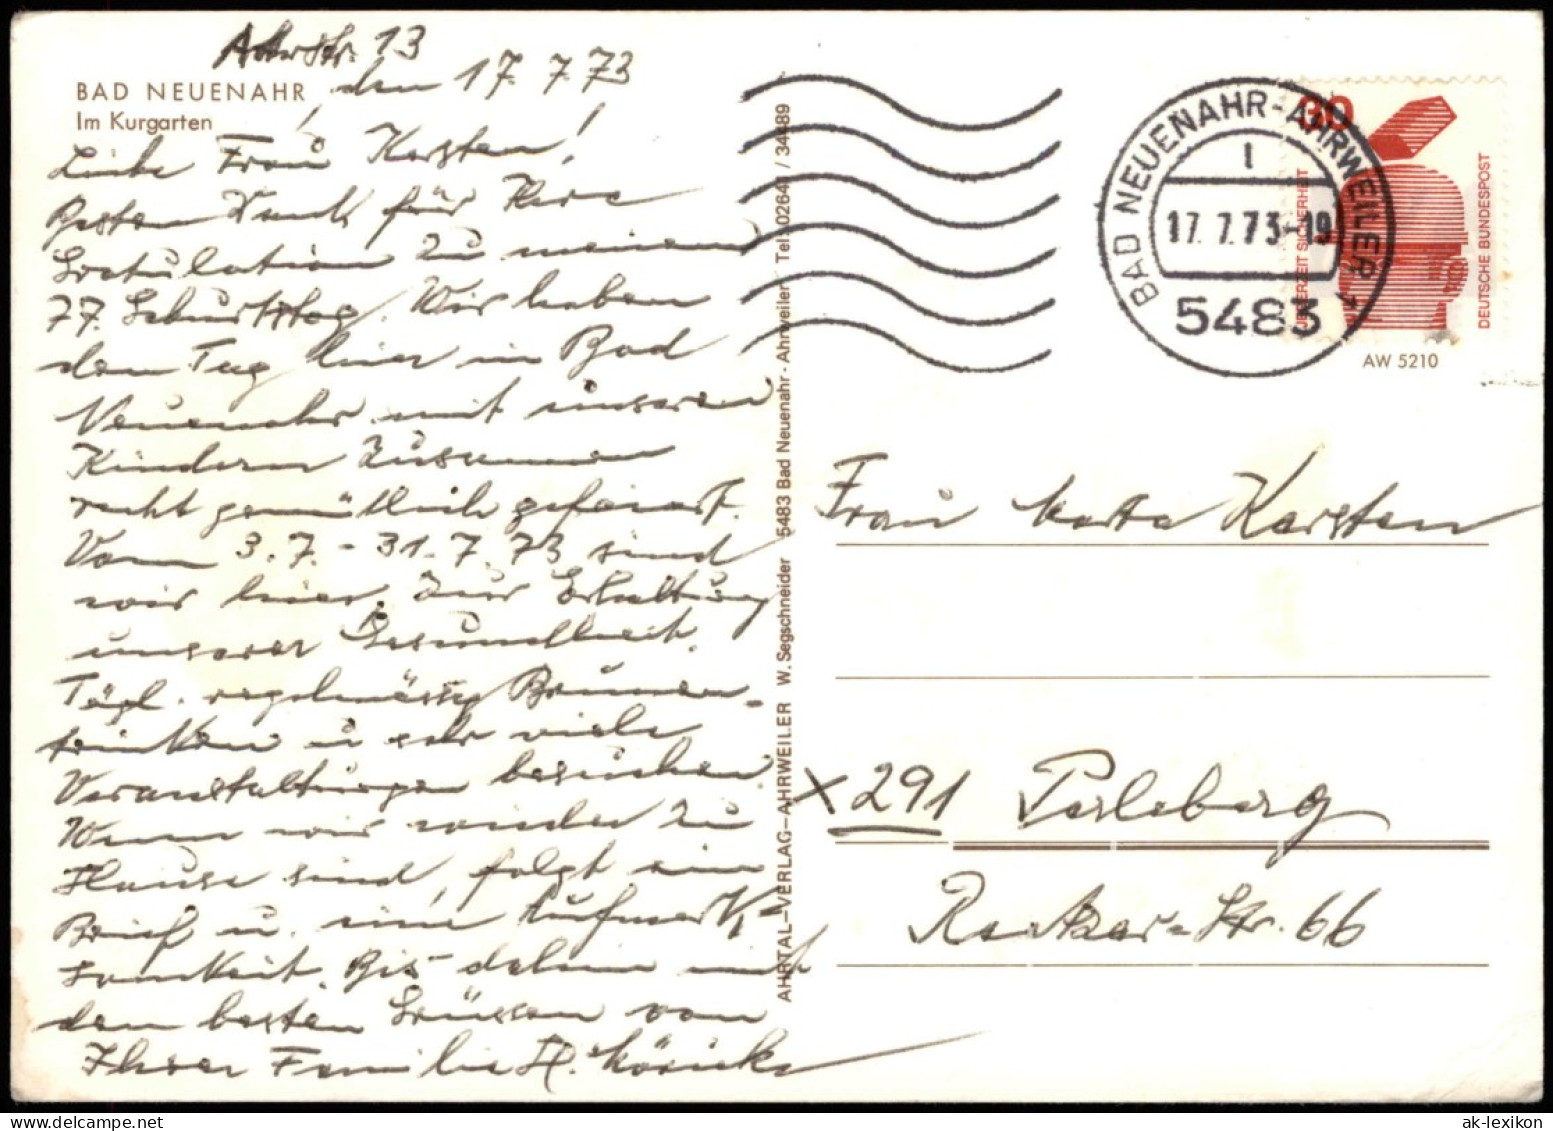 Ahrstr. 13
BAD NEUENAHR, den 17.7.73
Im Kurgarten
Liebe Frau Karsten!
Besten Dank für Ihre
Gratulation zu meinem
77. Geburtstag. Wir haben
den Tag hier in Bad
Neuenahr mit unseren
Kindern zusammen
recht gemütlich gefeiert.
Vom 3.7. - 31.7.73 sind
wir hier zur Erhaltung
unserer Gesundheit.
Tägl. regelmässig Brunnen-
trinken u sehr viele
Veranstaltungen besuchen
Wenn wir wieder zu
Hause sind, folgt ein
Brief u. eine Aufmerk-
samkeit. Bis dahin mit
den besten Grüssen von
Ihrer Familie H.
AHRTAL-VERLAG-AHRWEILER W. Segschneider 5483 Bad Neuenahr - Ahrweiler Tel. 02641 / 34489
BAD NEUENAHR-AHRWEILER 1
17.7.73-19
5483
30
JEDERZEIT SICHERHEIT
DEUTSCHE BUNDESPOST
AW 5210
Frau Karsten
X 291 Perleberg
-Str. 66
ak-lexikon.com